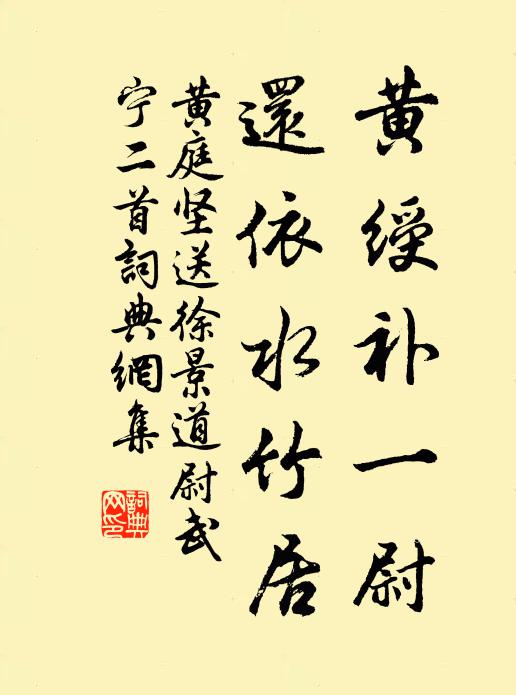 黄绶补一尉
還依水竹居
黄庭坚送徐景道尉武
宁二首詞典網集
詞典
网印